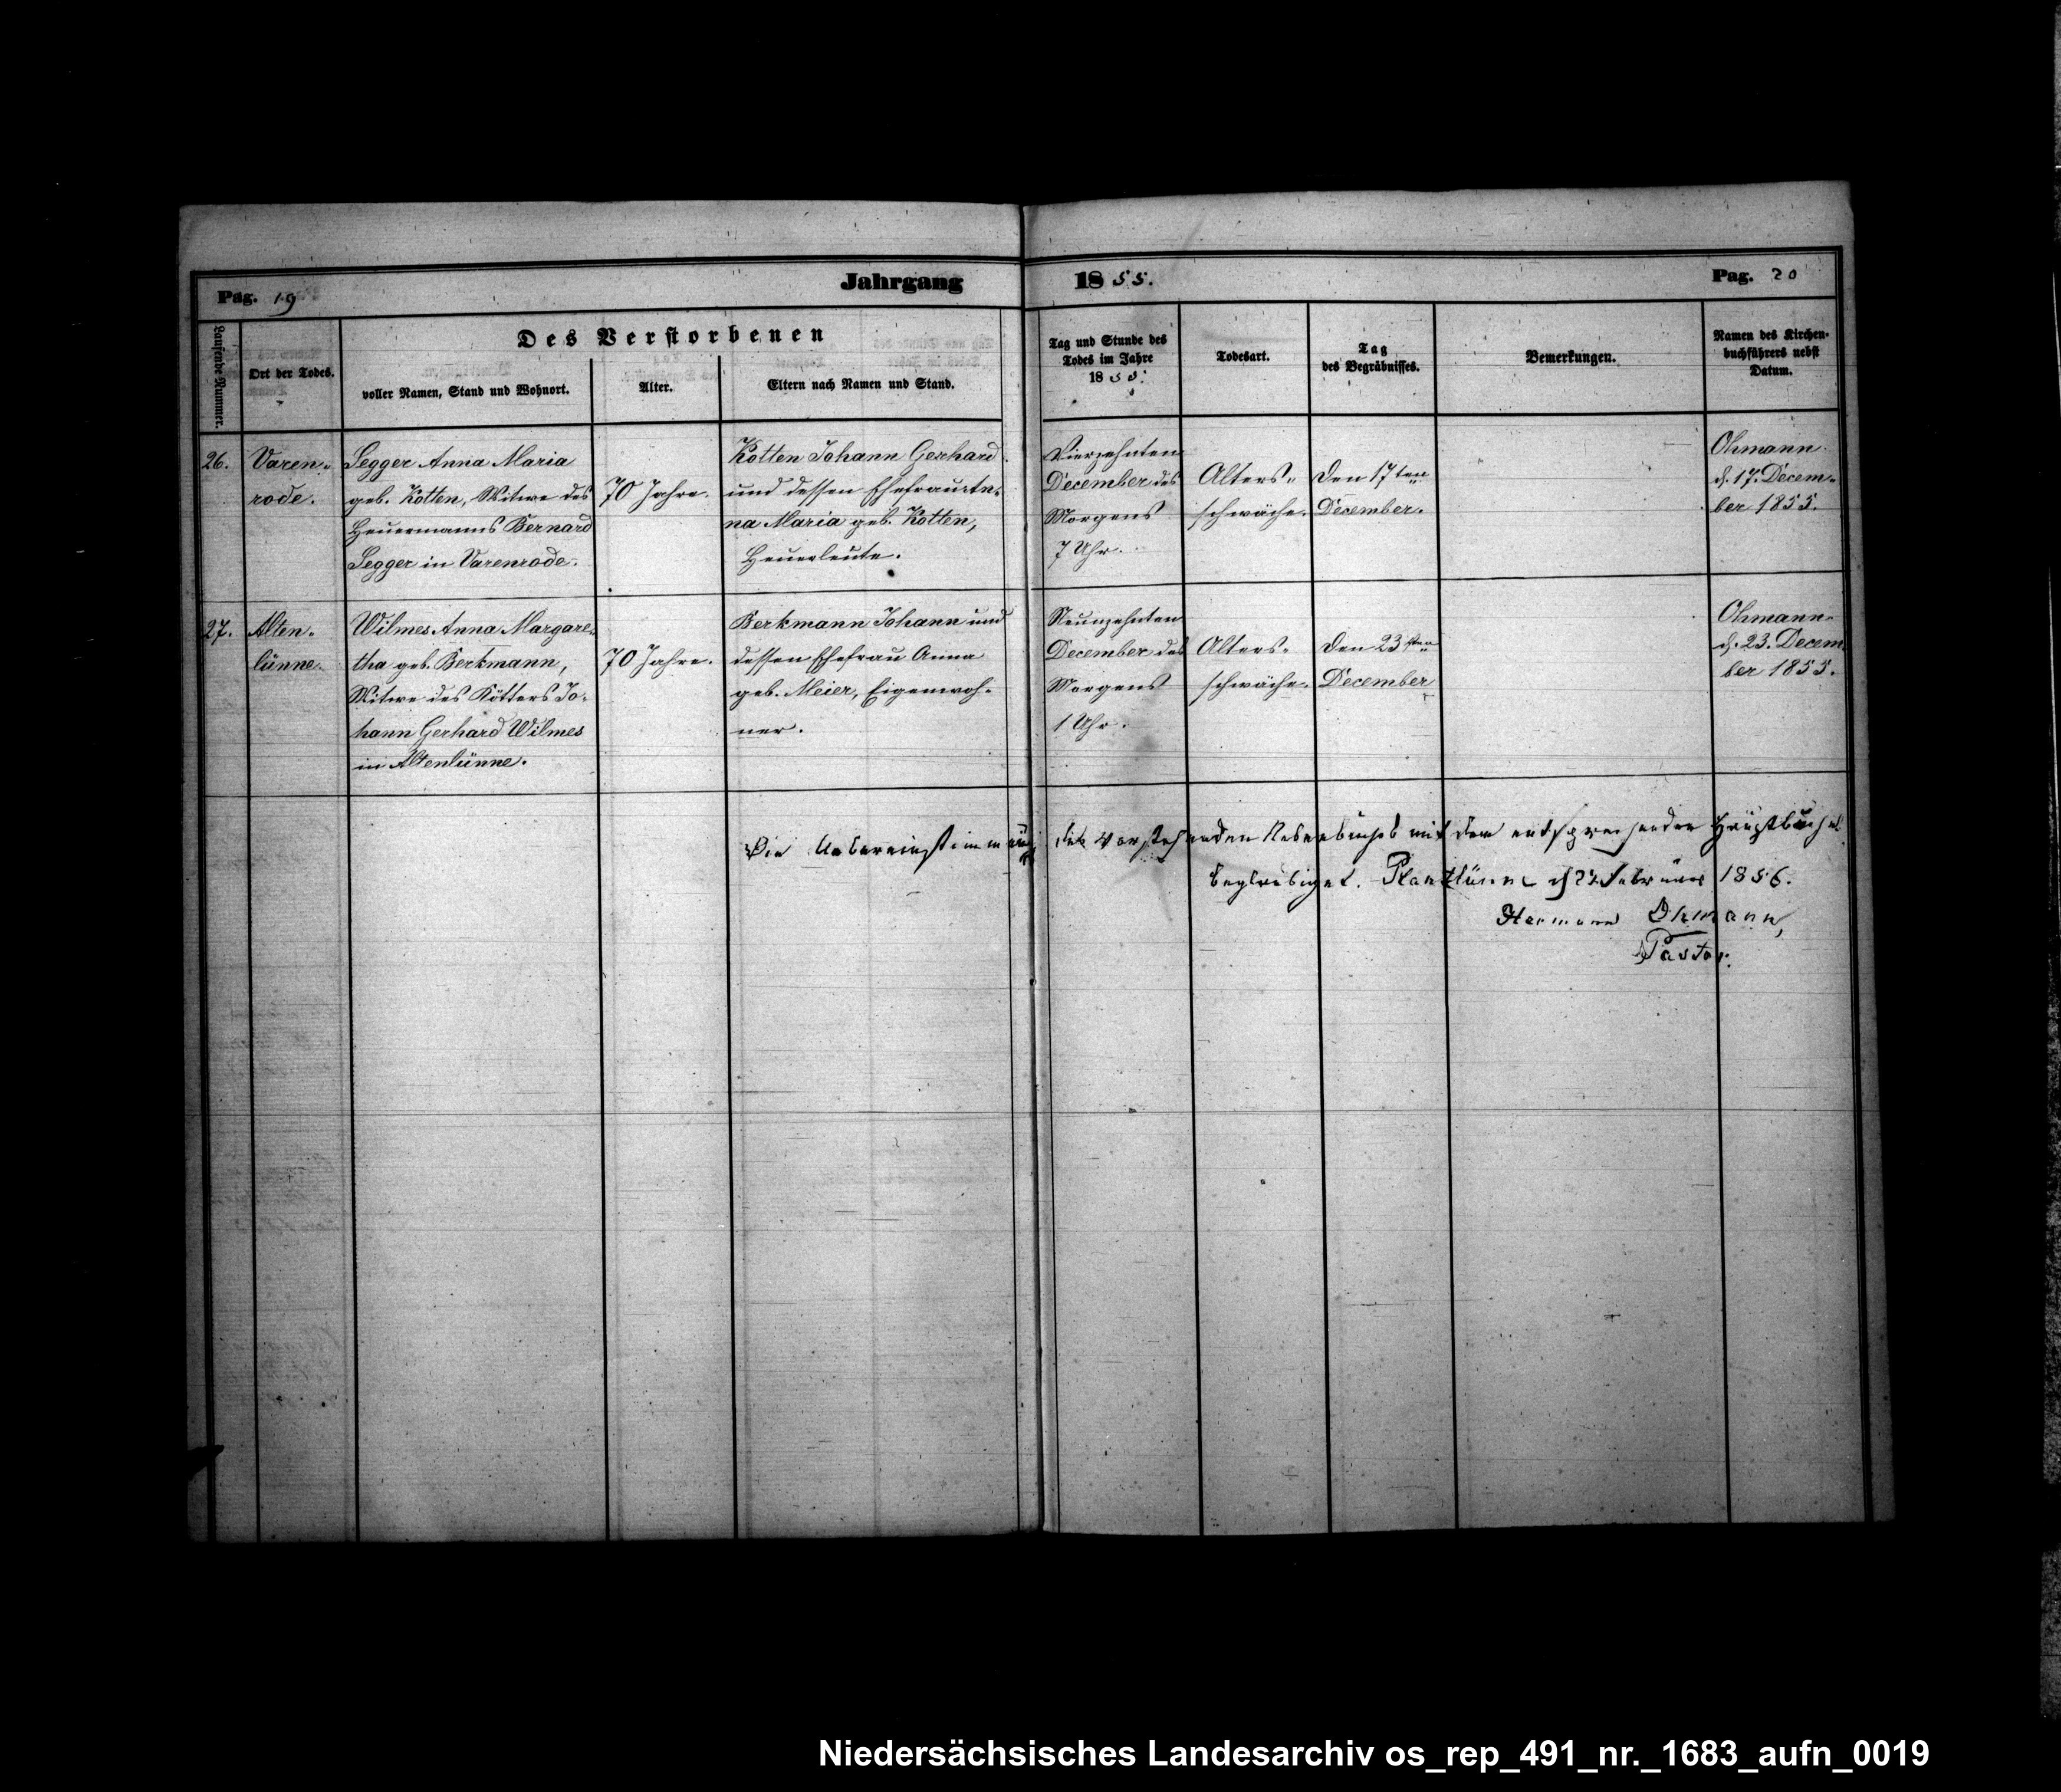 Pag. 19
Jahrgang 1855.
Pag. 20
Laufende Nummer.
Ort der Todes.
Des Verstorbenen
voller Namen, Stand und Wohnort.
Alter.
Eltern nach Namen und Stand.
Tag und Stunde des
Todes im Jahre
1855.
Todesart.
Tag
des Begräbnisses.
Bemerkungen.
Namen des Kirchen-
buchführers nebst
Datum.
26.
Varen-
rode.
Segger Anna Maria
geb. Kotten, Witwe des
Heuermanns Bernard
Segger in Varenrode.
70 Jahre.
Kotten Johann Gerhard
und dessen Ehefrau An-
na Maria geb. Kotten,
Heuerleute.
Vierzehnten
December des
Morgens
7 Uhr.
Alters-
schwäche.
Den 17ten
December.
Ohmann
d. 17. Decem-
ber 1855.
27.
Alten-
lünne.
Wilmes Anna Margare-
tha geb. Berkmann,
Witwe des Kötters Jo-
hann Gerhard Wilmes
in Altenlünne.
70 Jahre.
Berkmann Johann und
dessen Ehefrau Anna
geb. Meier, Eigenwoh-
ner.
Neunzehnten
December des
Morgens
1 Uhr.
Alters-
schwäche.
Den 23sten
December
Ohmann
d. 23. Decem
ber 1855.
Die Uebereinstimmung des vorstehenden Nebenbuchs mit dem entsprechenden Hauptbuche
beglaubiget. Plantlünne d Februar 1856.
Hermann Ohmann,
Pastor.
Niedersächsisches Landesarchiv os_rep_491_nr._1683_aufn_0019